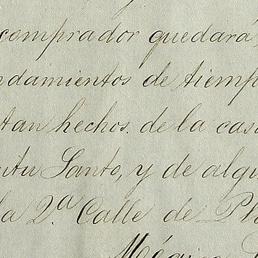 comprador quedará
ndamientos de tiemp
tan hechos. de la cas
itu Santo, y de algu
la 2.ª Calle de Pl
México